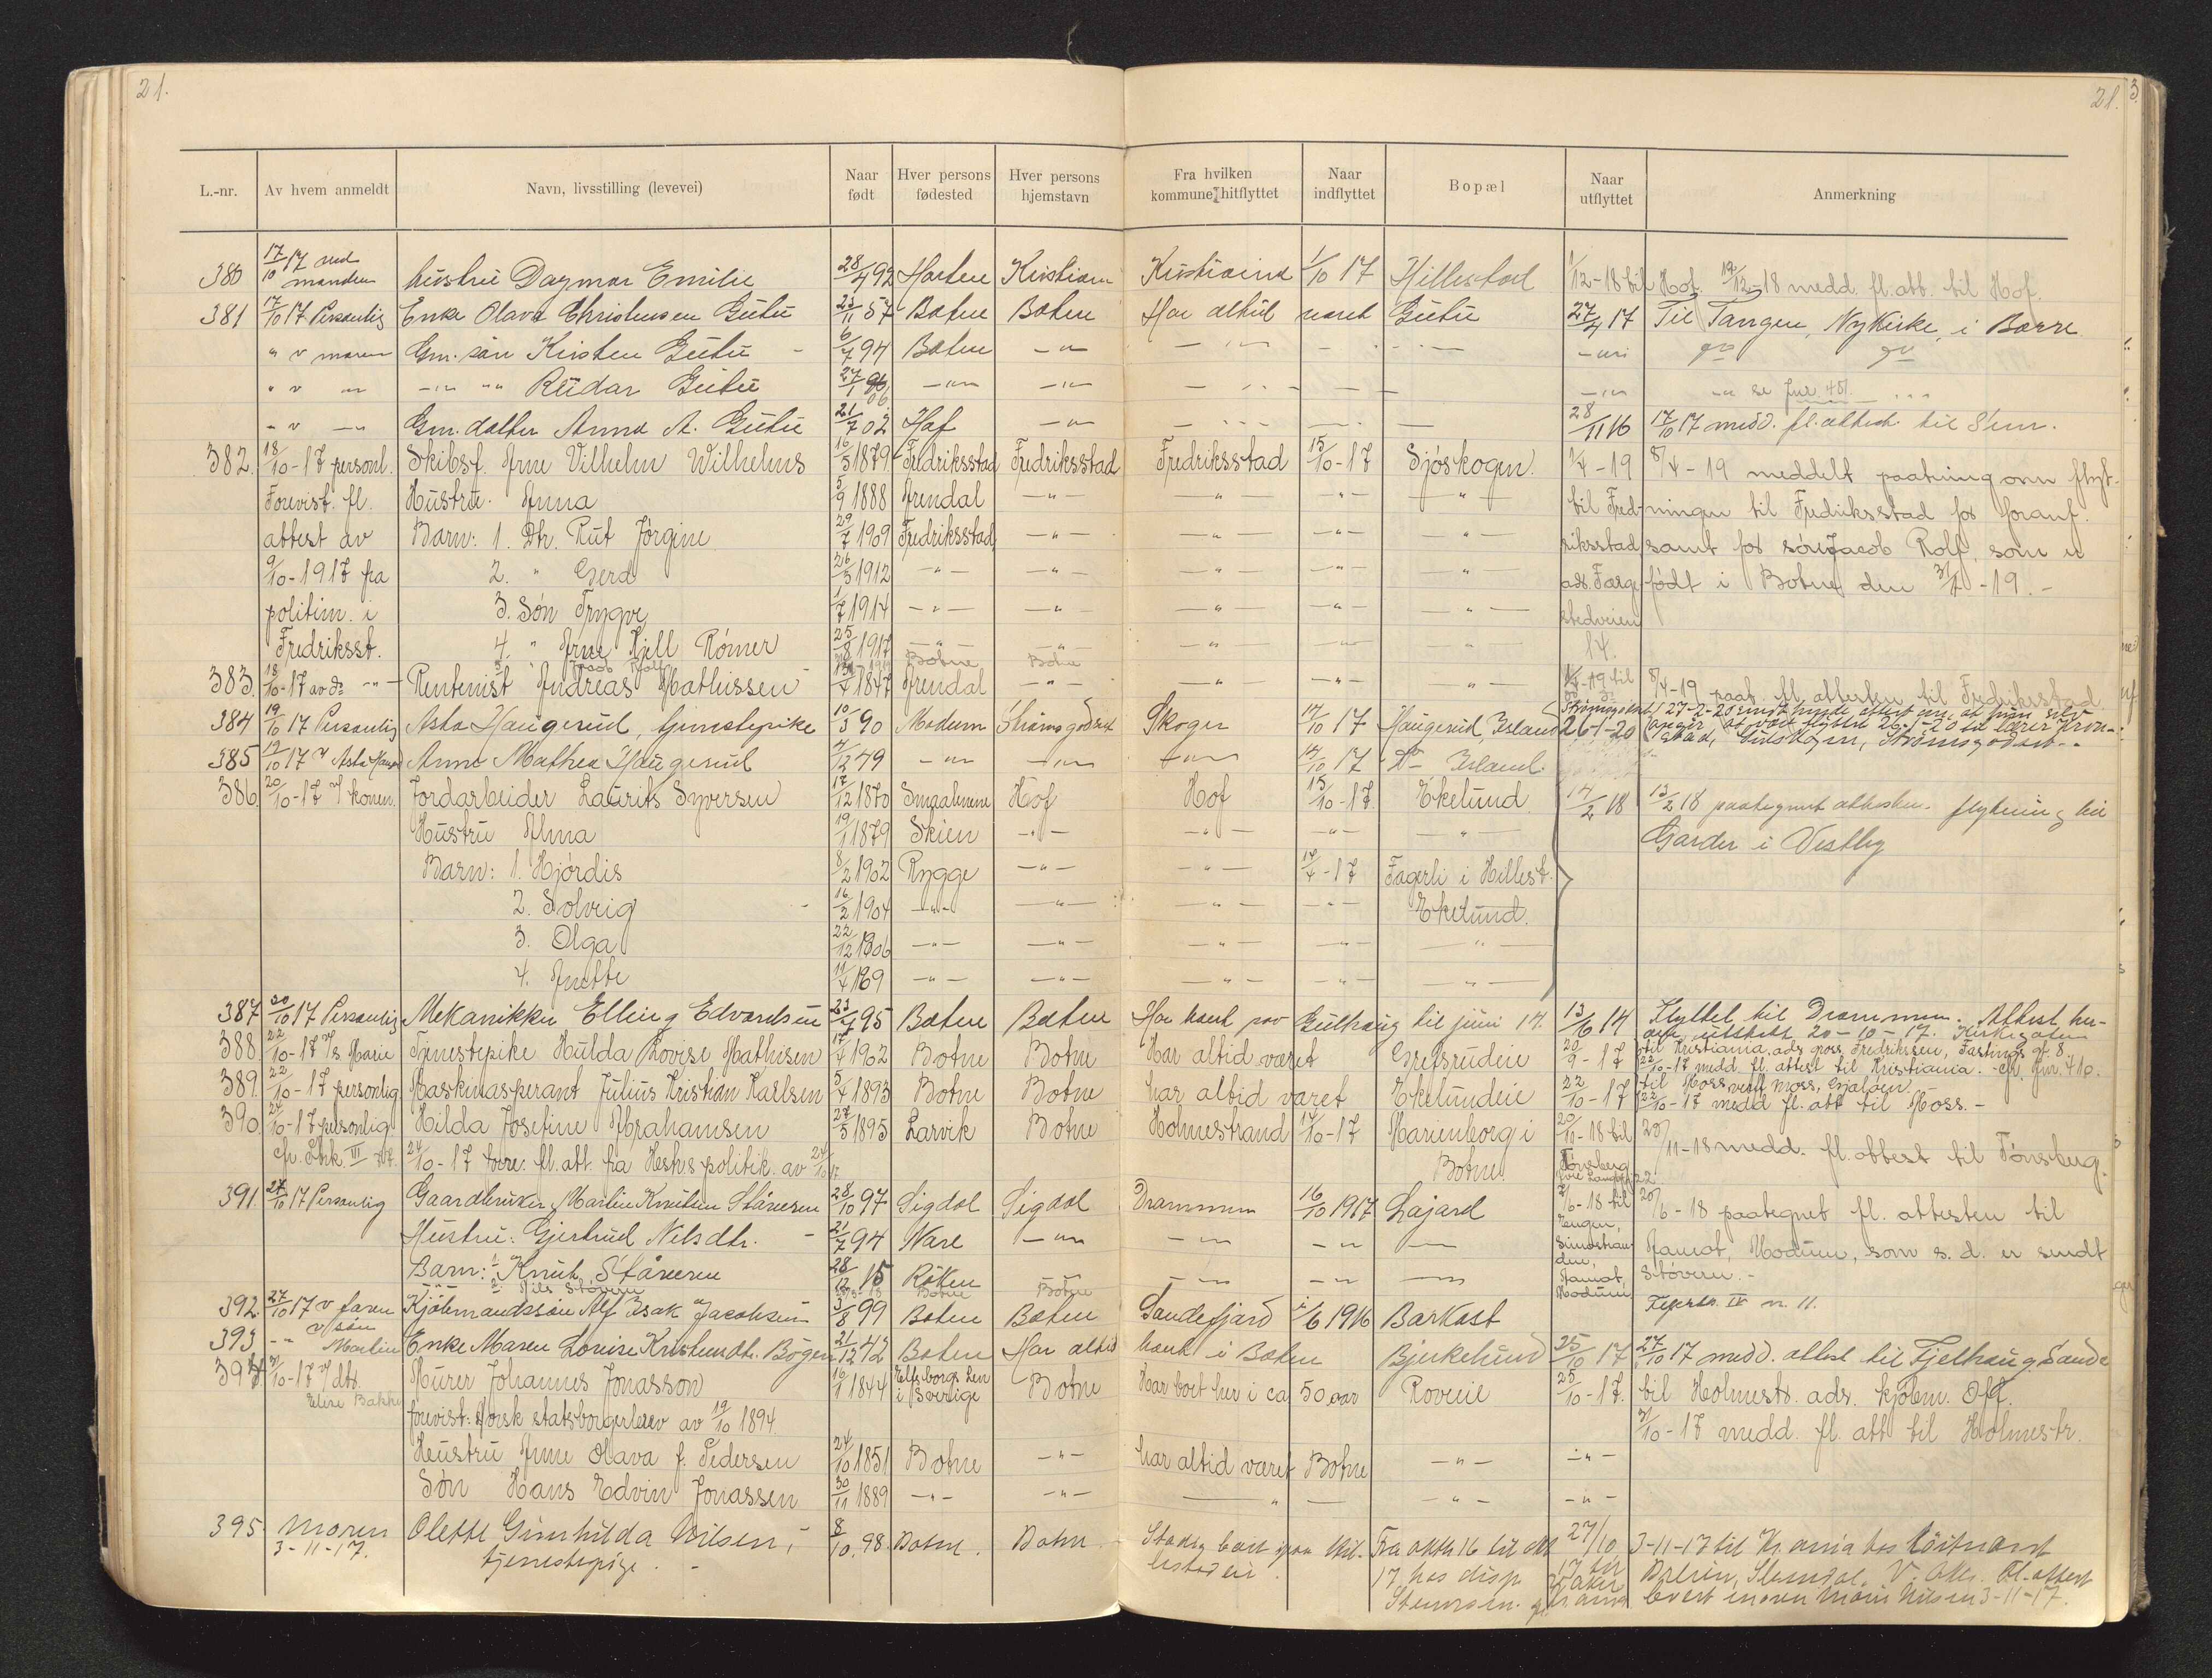 21.
21.
3
L.-nr. Av hvem anmeldt Navn, livsstilling (levevei) Naar født Hver persons fødested Hver persons hjemstavn Fra hvilken kommune hitflyttet Naar indflyttet Bopæl Naar utflyttet Anmerkning
380 17/10 17 ved manden hustru Dagmar Emilie 28/4 92 Horten Kristiania Kristiania 1/10 17 Hillestad 1/12-18 til Hof. 19/12-18 medd. fl. att. til Hof.
381 17/10 17 Personlig Enke Olava Christensen Gutu 23/11 57 Botne Botne Har altid været Gutu 27/4 17 Til Tangen, Nykirke, i Borre
" v moren Gm. søn Kirsten Gutu 6/7 94 Botne -"-
" v " -"- Reidar Gutu 27/1 06 -"- -"- se jnr. 451.
" v -"- Gm. datter Anna A. Gutu 21/7 02 Hof -"- 28/11 16 17/10 17 medd. fl. attest til Skien.
382. 18/10-17 personl. Skibsf. Arne Vilhelm Wilhelms 16/5 1879 Fredriksstad Fredriksstad Fredriksstad 15/10-17 Sjöskogen. 1/4-19 8/4-19 meddelt paategning om flyt-
Forevist fl. Hustru. Anna 5/9 1888 Arendal -"- -"- -"- -"- til Fred- ningen til Fredriksstad for foranf.
attest av Barn: 1. Dtr. Rut Jørgine 29/7 1909 Fredriksstad -"- -"- -"- -"- riksstad samt for sønn Jacob Rolf, som er
9/10-1917 fra 2. " Gerd 26/5 1912 -"- -"- -"- -"- -"- ads. Færge- født i Botne den 31/1-19.-
politim. i 3. Søn Trygve 1/7 1914 -"- -"- -"- -"- -"- stedveien
Fredriksst. 4. " Arne Kjell Rómer 25/8 1917 -"- -"- -"- -"- -"- 14.
5. Jacob Rolf 1919 Botne Botne
383. 18/10-17 av do -"- Rentenist Andreas Mathissen 13/4 1847 Arendal -"- -"- -"- -"- 1/4-19 til 8/4-19 paat. fl. attesten til Fredriksstad.
384 19/10 17 Personlig Asta Haugerud, tjenestepike 10/3 90 Modum Strømsgodset Skoger 14/10 17 Haugerud, Island 26-1-20
385 19/10 17 v Asta Haug Anne Mathea Haugerud 4/12 79 -"- -"- -"- 14/10 17 Do Island.
386. 20/10-17 v/ konen. Jordarbeider Laurits Syversen 17/12 1870 Smaalenene Hof Hof 15/10-17. Ekelund 14/2 18 13/2 18 paategnet attesten flytning til
Hustru Alma 19/1 1879 Skien -"- -"- -"- -"- Garder i Vestby
Barn: 1. Hjórdis 8/2 1902 Rygge -"- -"- 14/4-17 Fagerli i Hillest.
2. Solveig 16/2 1904 -"- -"- -"- -"- Ekelund.
3. Olga 22/12 1906 -"- -"- -"- -"- -"-
4. Anette 11/4 1909 -"- -"- -"- -"- -"-
387. 20/10 17 Personlig Mekaniker Elling Edvardsen 23/7 95 Botne Botne Har boet paa Gulhaug til juni 14. 13/6 14 Flyttet til Drammen. Attest her-
388. 22/10-17 v/s Marie Tjenestepike Hulda Lovise Mathisen 17/4 1902 Botne Botne Har altid været Grefsrudeie 20/9-17 til Kristiania, ads. gross. Fredriksen,
22/10-17 medd. fl. attest til Kristiania. cfr. jnr. 410.
389. 22/10-17 personlig Maskinasperant Julius Kristian Karlsen 5/4 1893 Botne Botne har altid været Ekelundeie 22/10-17 til Moss verft Moss, Gjaløen.
22/10-17 medd fl. att til Moss.-
390. 24/10-17 personlig Hilda Josefine Abrahamsen 27/5 1895 Larvik Botne Holmestrand 14/10-17 Marienborg i Botne. 20/11-18 til Tönsberg 20/11-18 medd. fl. attest til Tönsberg.
24/10-17 fore: fl. att. fra Hstrs politik. av 24/10 17
391. 27/10 17 Personlig Gaardbruker Martin Knutsen Stáveren 28/10 97 Sigdal Sigdal Drammen 16/10 1917 Lajard 2/6-18 til 20/6-18 paategnet fl. attesten til
Hustru: Gjertrud Nilsdtr. 21/7 94 Nare -"- -"- -"- -"- Aamot, Modum, som s. d. er sendt
Barn: 1. Knut Stáveren 28/12 15 Röken -"- -"- -"- Aamot, Modum Stóveren.-
2. Nils Stóveren Botne Botne
392. 27/10 17 v faren Kjöbmandssön Alf Isak Jacobsen 3/8 99 Botne Botne Sandefjord 1/6 1916 Barkost
393 -"- v søn Martin Enke Maren Lovise Kristensdtr. Bögen 21/12 42 Botne Har altid boet i Botne Bjerkelund 25/10 17 27/10 17 medd. attest til Fjelhaug Sande
394 31/10-17 v/ dtr. Elise Bakke Murer Johannes Jonasson 16/1 1844 Elfsborgs Len i Sverige Botne Har boet her i ca 50 aar Roveie 25/10-17. til Holmestr. ads. kjöbm. Off.
forevist: Norsk statsborgerbrev av 19/10 1894. 31/10-17 medd. fl. att til Holmestr.
Hustru Anne Olava f. Pedersen 24/10 1851 Botne -"- har altid været Botne -"- -"-
Sön Hans Edvin Jonassen 30/11 1889 -"- -"- -"- -"- -"-
395 Moren 3-11-17. Olette Gunhilda Nilsen, tjenestepige. 8/10. 98. Botne. Botne. Stadig boet paa Hil- lestadeie. Fra okt. 16 til okt 17 hos disp. 27/10 3-11-17 til Kr.ania hos löitnant
V. Aker. Fl. attest
levert moren Marie Nilsen 3-11-17.